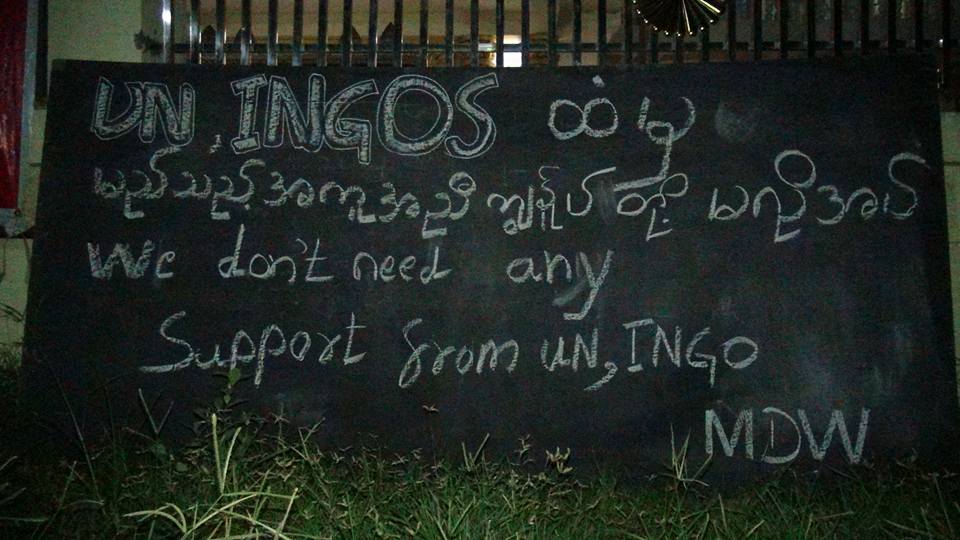 UN, INGOS ထံမှ
မည်သည့်အကူအညီ ကျွန်ုပ်တို့ မလိုအပ်
We don't need any
Support from UN, INGO
MDW